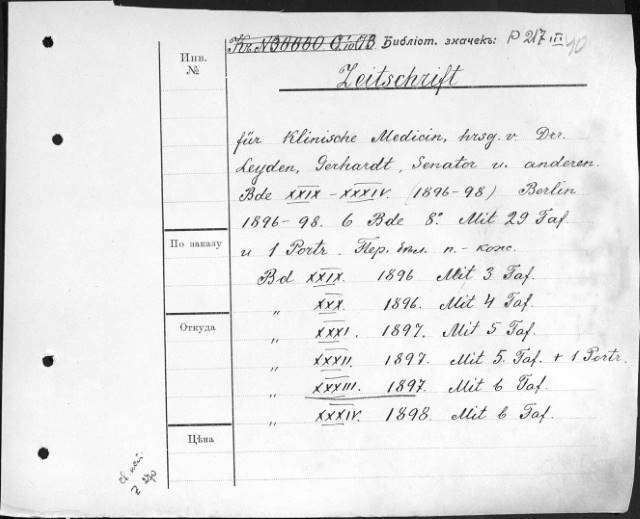 Библіот. значекъ: P 217 III 40
Инв. №
Zeitschrift
für Klinische Medicin, hrsg. v. Drr.
Leyden, Gerhardt, Senator u. anderen.
Bde XXIX - XXXIV. (1896-98) Berlin
1896-98. 6 Bde 8°. Mit 29 Taf.
По заказу
u 1 Portr. Пер. бил. п.- кож.
Bd XXIX. 1896 Mit 3 Taf.
„ XXX. 1896. Mit 4 Taf.
Откуда
„ XXXI. 1897. Mit 5 Taf.
„ XXXII. 1897. Mit 5. Taf. + 1 Portr.
„ XXXIII. 1897. Mit 6 Taf.
„ XXXIV. 1898. Mit 6 Taf.
Цѣна